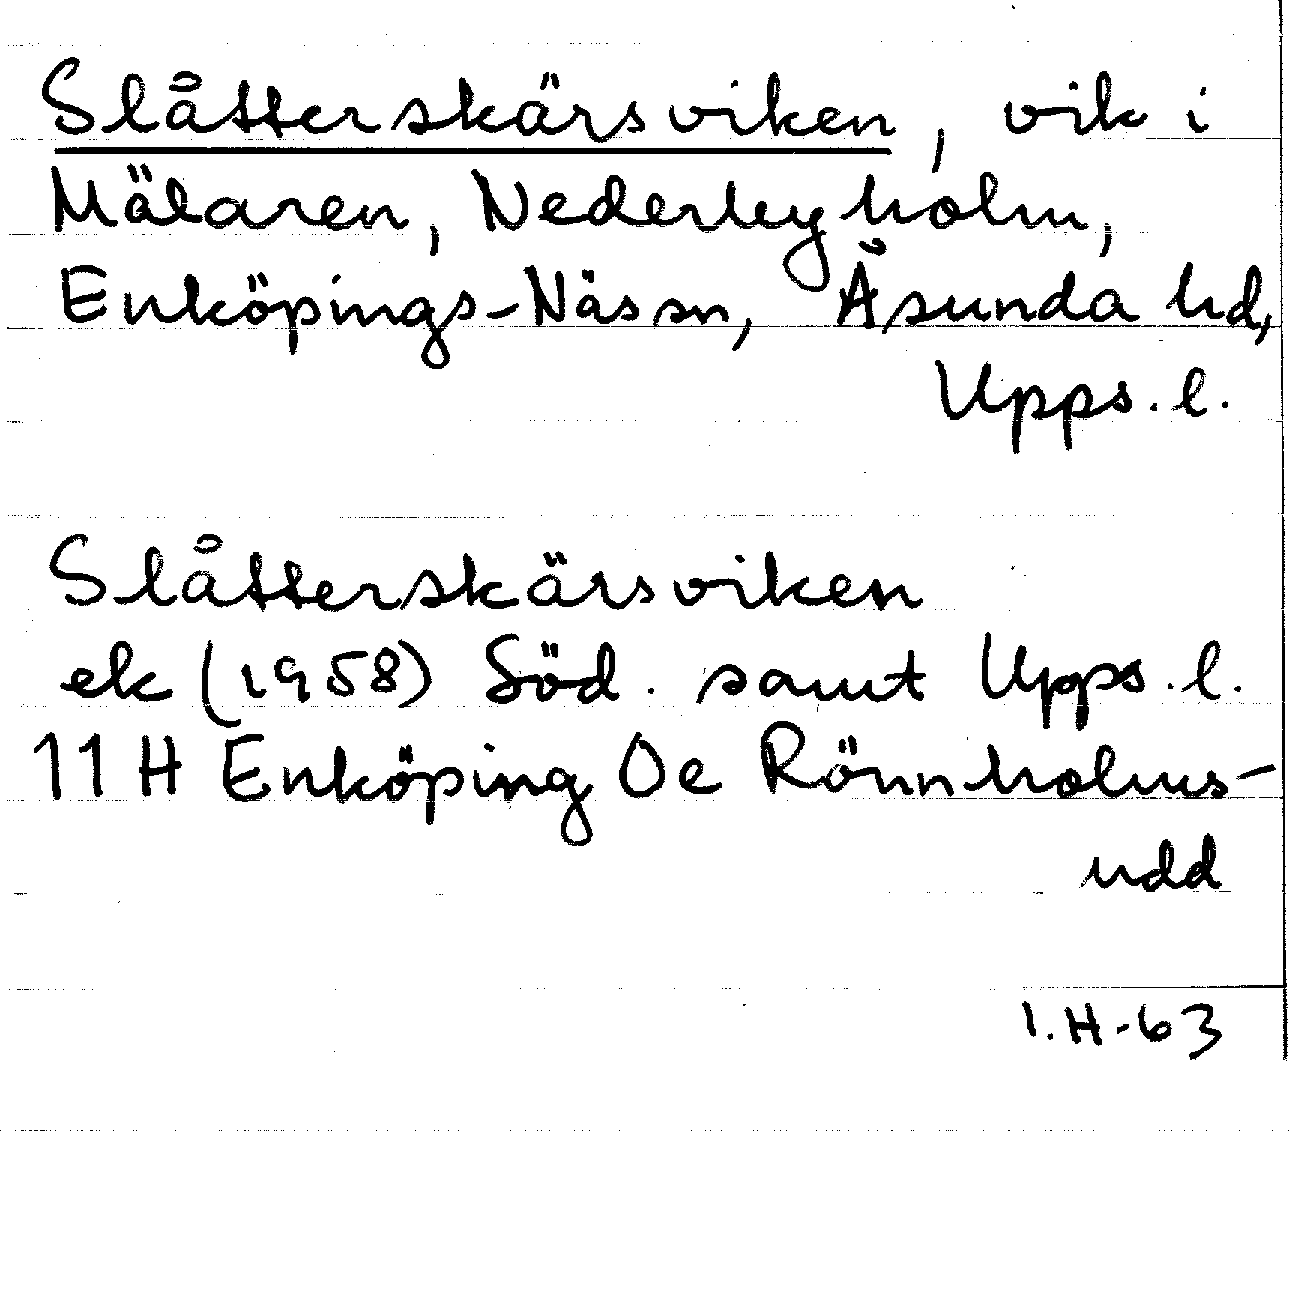 Slåtterskärsviken, vik i
Mälaren, Nederleyholm,
Enköpings-Näs sn, Åsunda hd,
Upps. l.
Slåtterskärsviken
ek (1958) Söd. samt Upps. l.
11 H Enköping Oe Rönnholms-
udd
I.H-63